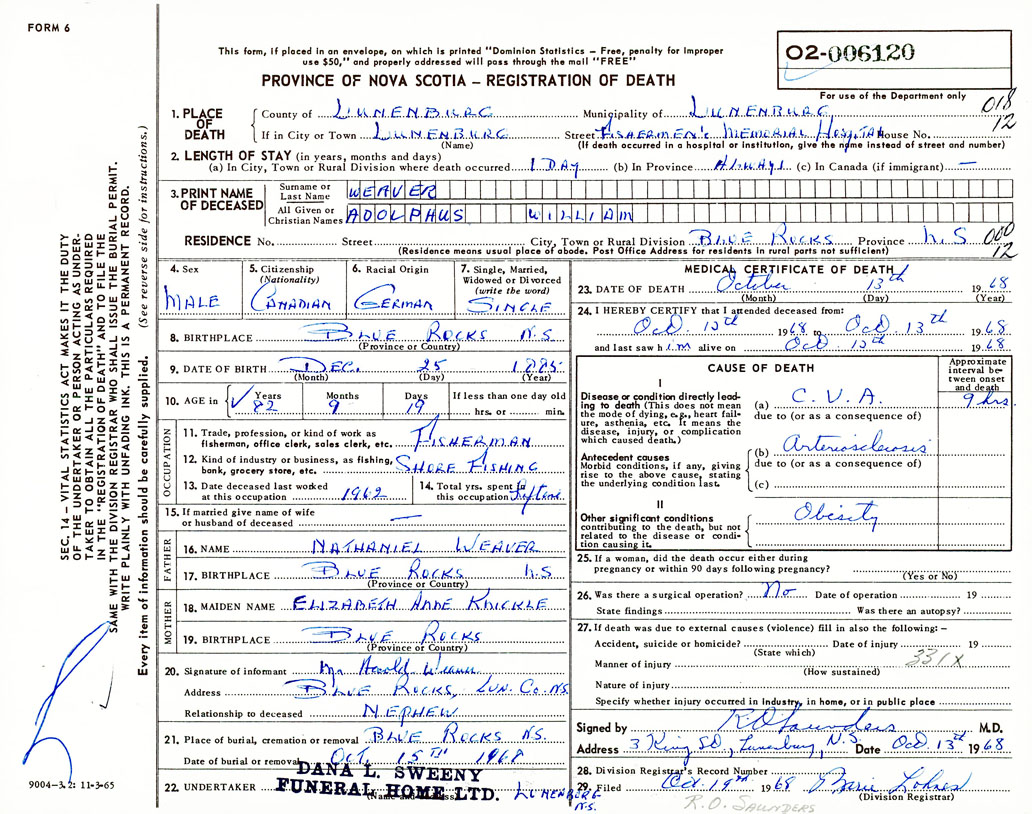 FORM 6
This form, if placed in an envelope, on which is printed "Dominion Statistics – Free, penalty for improper
use $50," and properly addressed will pass through the mail "FREE"
O2-006120
PROVINCE OF NOVA SCOTIA – REGISTRATION OF DEATH
For use of the Department only
018
12
1. PLACE OF DEATH
County of LUNENBURG Municipality of LUNENBURG
If in City or Town LUNENBURG Street FISHERMEN'S MEMORIAL HOSPITAL House No.
(Name) (If death occurred in a hospital or institution, give the name instead of street and number)
2. LENGTH OF STAY (in years, months and days)
(a) In City, Town or Rural Division where death occurred 1 DAY (b) In Province ALWAYS (c) In Canada (if immigrant) —
3. PRINT NAME OF DECEASED
Surname or Last Name WEAVER
All Given or Christian Names ADOLPHUS WILLIAM
RESIDENCE No. Street City, Town or Rural Division BLUE ROCKS Province N.S
(Residence means usual place of abode. Post Office Address for residents in rural parts not sufficient)
000
12
4. Sex
MALE
5. Citizenship
(Nationality)
CANADIAN
6. Racial Origin
GERMAN
7. Single, Married,
Widowed or Divorced
(write the word)
SINGLE
8. BIRTHPLACE BLUE ROCKS N.S
(Province or Country)
9. DATE OF BIRTH DEC. 25 1885
(Month) (Day) (Year)
10. AGE in
Years 82
Months 9
Days 19
If less than one day old
hrs. or min.
OCCUPATION
11. Trade, profession, or kind of work as
fisherman, office clerk, sales clerk, etc. FISHERMAN
12. Kind of industry or business, as fishing,
bank, grocery store, etc. SHORE FISHING
13. Date deceased last worked
at this occupation 1962
14. Total yrs. spent in
this occupation Lifetime
15. If married give name of wife
or husband of deceased —
FATHER
16. NAME NATHANIEL WEAVER
17. BIRTHPLACE BLUE ROCKS N.S
(Province or Country)
MOTHER
18. MAIDEN NAME ELIZABETH ANNE KNICKLE
19. BIRTHPLACE BLUE ROCKS
(Province or Country)
20. Signature of informant Mr Harold Weaver
Address BLUE ROCKS, LUN. CO. NS.
Relationship to deceased NEPHEW
21. Place of burial, cremation or removal BLUE ROCKS NS.
Date of burial or removal OCT. 15TH 1968
22. UNDERTAKER DANA L. SWEENY
FUNERAL HOME LTD. LUNENBERG
N.S.
(Name and Address)
MEDICAL CERTIFICATE OF DEATH
23. DATE OF DEATH October 13th 1968
(Month) (Day) (Year)
24. I HEREBY CERTIFY that I attended deceased from:
Oct. 13th 1968 to Oct. 13th 1968
and last saw him alive on Oct 13th 1968
CAUSE OF DEATH
Approximate
interval be-
tween onset
and death
I
Disease or condition directly lead-
ing to death (This does not mean
the mode of dying, e.g., heart fail-
ure, asthenia, etc. It means the
disease, injury, or complication
which caused death.)
(a) C. V. A. 9 hrs
due to (or as a consequence of)
Antecedent causes
Morbid conditions, if any, giving
rise to the above cause, stating
the underlying condition last.
(b) Arteriosclerosis
due to (or as a consequence of)
(c)
II
Other significant conditions
contributing to the death, but not
related to the disease or condi-
tion causing it.
Obesity
25. If a woman, did the death occur either during
pregnancy or within 90 days following pregnancy?
(Yes or No)
26. Was there a surgical operation? No Date of operation 19
State findings Was there an autopsy?
27. If death was due to external causes (violence) fill in also the following: –
Accident, suicide or homicide? Date of injury 19
(State which) 331X
Manner of injury
(How sustained)
Nature of injury
Specify whether injury occurred in Industry, in home, or in public place
Signed by R.O. Saunders M.D.
Address 3 King St., Lunenburg, N.S Date Oct 13th 1968
28. Division Registrar's Record Number
29. Filed Oct. 19th 1968 Marie Lohnes
(Division Registrar)
R. O. SAUNDERS
SEC. 14 – VITAL STATISTICS ACT MAKES IT THE DUTY
OF THE UNDERTAKER OR PERSON ACTING AS UNDER-
TAKER TO OBTAIN ALL THE PARTICULARS REQUIRED
IN THE "REGISTRATION OF DEATH" AND TO FILE THE
SAME WITH THE DIVISION REGISTRAR WHO SHALL ISSUE THE BURIAL PERMIT.
WRITE PLAINLY WITH UNFADING INK. THIS IS A PERMANENT RECORD.
Every item of information should be carefully supplied. (See reverse side for instructions.)
9004–3.2: 11-3-65